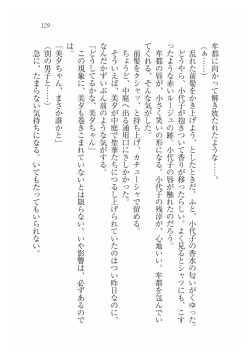 129
牢都に向かって解き放たれたような……。
（あ……）
乱れた前髪をかき上げよう、としたときだ。ふと、小代子の香水の匂いがくゆった。
どうやら、小代子が抱きついて香りが移ったらしい。よく見るとシャツにも、こす
ったような赤いルージュの跡。小代子の唇が触れたのだろう。
牢都の唇が、小さく笑いの形になる。小代子の残滓が、心地いい。牢都を包んでい
てくれる、そんな気がする。
前髪をクシャッ、と持ち上げ、カチューシャで留める。
ちょうど、中庭へ出る通用口にさしかかった。
そういえば、美夕が中庭で聖華たちにつるし上げられていたのはつい昨日なのに、
なんだかずいぶん前のような気がする。
「どうしてるかな、美夕ちゃん」
この現象に、美夕も巻きこまれていないとは限らない。いや影響は、必ずあるので
は。
「美夕ちゃん、まさか誰かと」
（別の男子と……）
急に、たまらない気持ちになる。いてもたってもいられない。